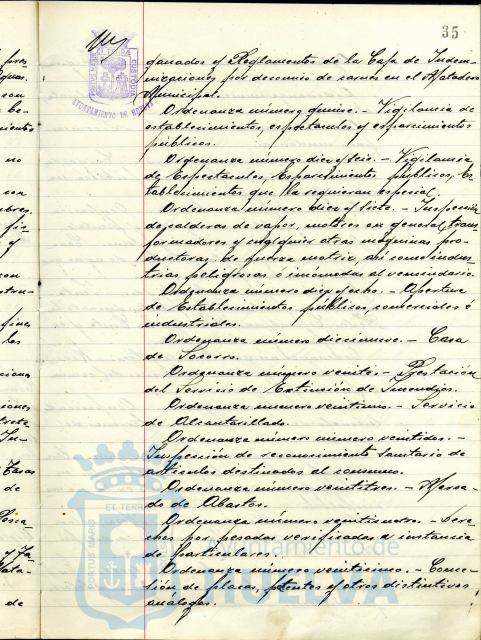 35
ganados y Reglamentos de la Caja de Indem-
nizaciones por decomiso de carnes en el Matadero
Municipal.
Ordenanza número quince.- Vigilancia de
establecimientos, espectáculos y esparcimientos
públicos.
Ordenanza número diez y seis.- Vigilancia
de Espectáculos, Esparcimientos públicos, Es-
tablecimientos que la requieran especial.
Ordenanza número diez y siete.- Inspección
de calderas de vapor, motores en general, trans-
formadores y cualquier otras máquinas pro-
ductoras de fuerza motriz, así como indus-
trias peligrosas ó incómodas al vecindario.
Ordenanza número diez y ocho.- Apertura
de Establecimientos públicos, comerciales é
industriales.
Ordenanza número diecinueve.- Casa
de Socorro.
Ordenanza número veinte.- Prestación
del Servicio de Extinción de Incendios.
Ordenanza número veintiuno.- Servicio
de Alcantarillado.
Ordenanza número número veintidos.-
Inspección de reconocimiento sanitario de
artículos destinados al consumo.
Ordenanza número veintitres.- Merca-
do de Abastos.
Ordenanza número veinticuatro.- Dere-
chos por pesadas verificadas a instancia
de particulares.
Ordenanza número veinticinco.- Conce-
sión de placas, patentes y otros distintivos
análogos.
AYUNTAMIENTO DE HUELVA
CUSTODIA
PORTUS MARIS
ET TERRAE
Ayuntamiento de
HUELVA